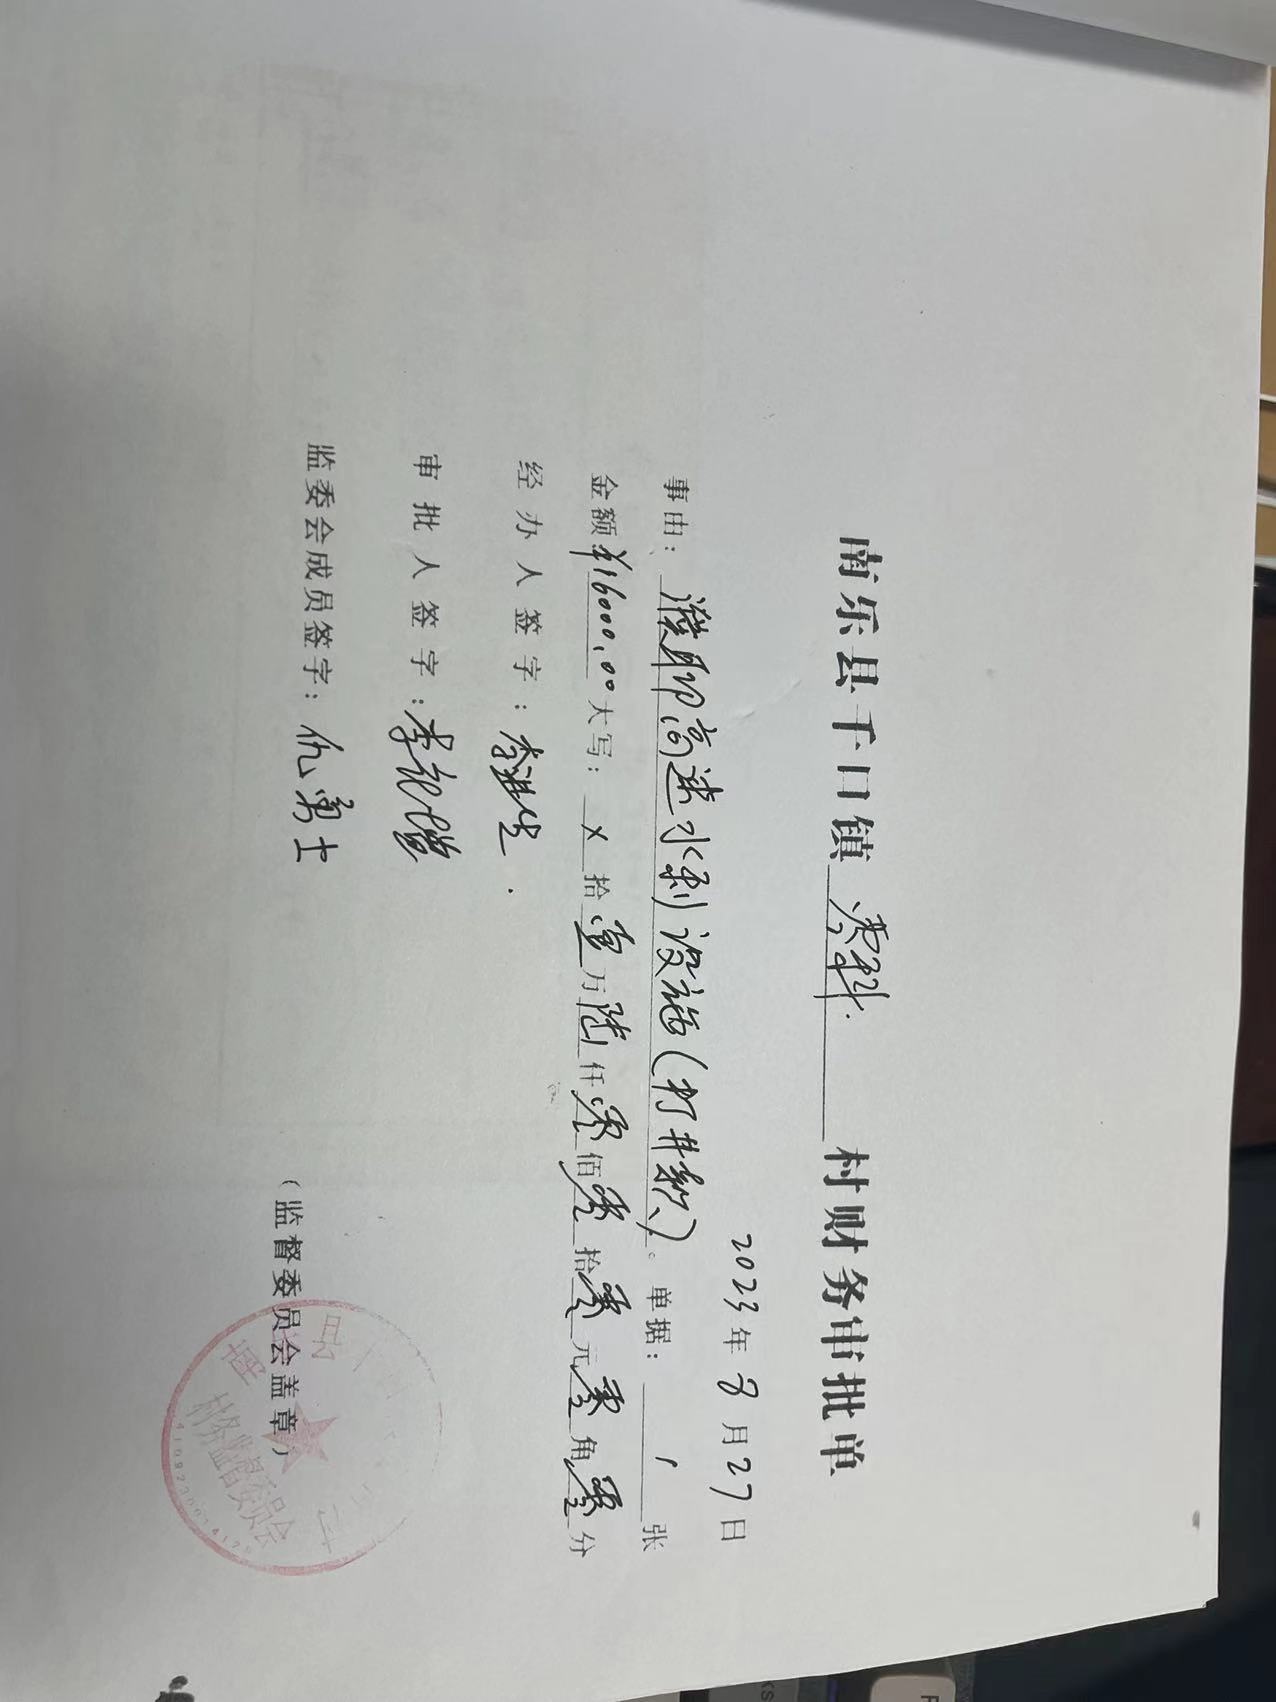 南乐县千口镇 村财务审批单
2023年8月27日
事由：濮聊高速水利设施(打井款)。单据：1张
金额:¥16000.00大写：×拾壹万陆仟零佰零拾零元零角零分
经办人签字：李
审批人签字：李
监委会成员签字：仇勇士
（监督委员会盖章）
南 县
村务监督委员会